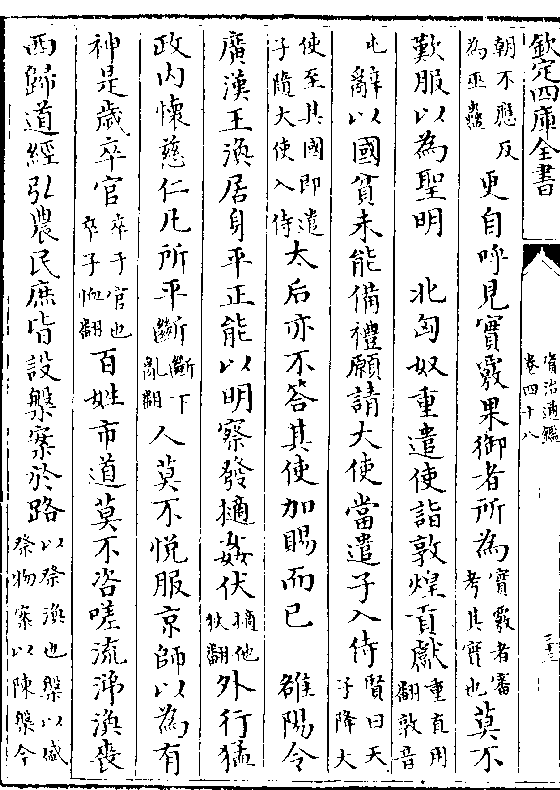 欽定四庫全書
資治通鑑
卷四十八
朝不應反
為巫蠱
更自呼見實覈果御者所為
實覈者審
考其實也
莫不
歎服以為聖明　北匈奴重遣使詣敦煌貢獻
重直用
翻敦音
屯
辭以國貧未能備禮願請大使當遣子入侍
賢曰天
子降大
使至其國即遣
子隨大使入侍
太后亦不答其使加賜而已　雒陽令
廣漢王渙居身平正能以明察發擿姦伏
擿他
狄翻
外行猛
政内懷慈仁凡所平斷
斷丁
亂翻
人莫不悦服京師以為有
神是歲卒官
卒于官也
卒子恤翻
百姓市道莫不咨嗟流涕渙喪
西歸道經弘農民庶皆設槃案於路
以祭渙也槃以盛
祭物案以陳槃今